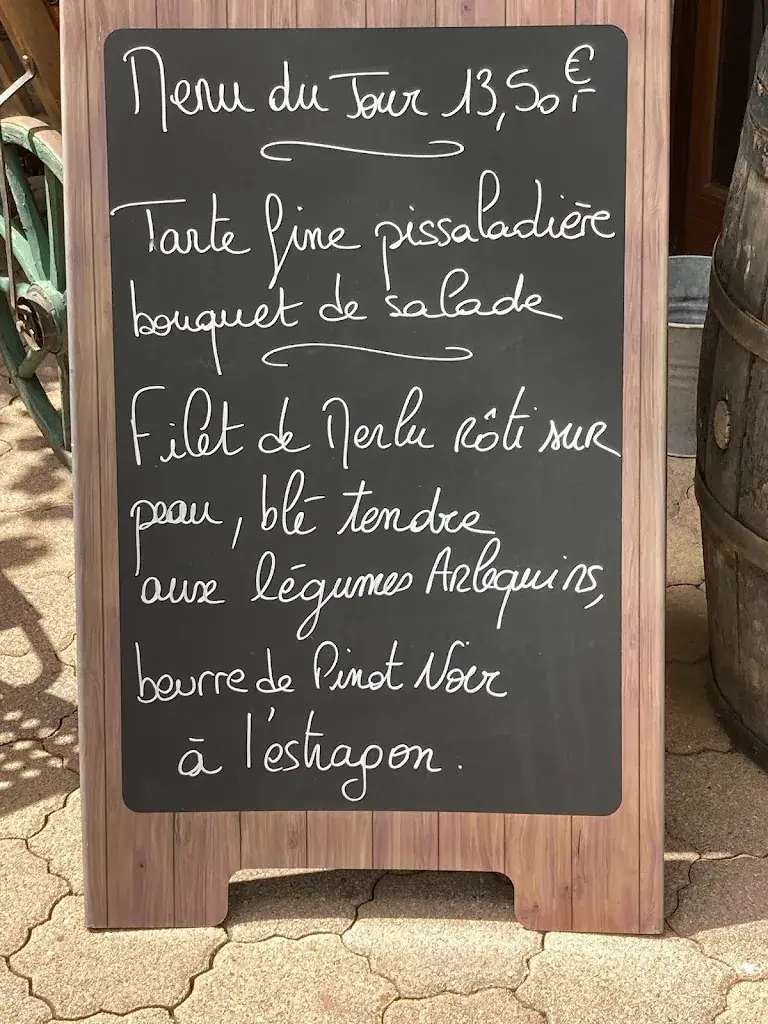 Menu du Jour 13,50 €
Tarte fine pissaladière
bouquet de salade
Filet de Merlu rôti sur
peau, blé tendre
aux légumes Arlequins,
beurre de Pinot Noir
à l'estragon.